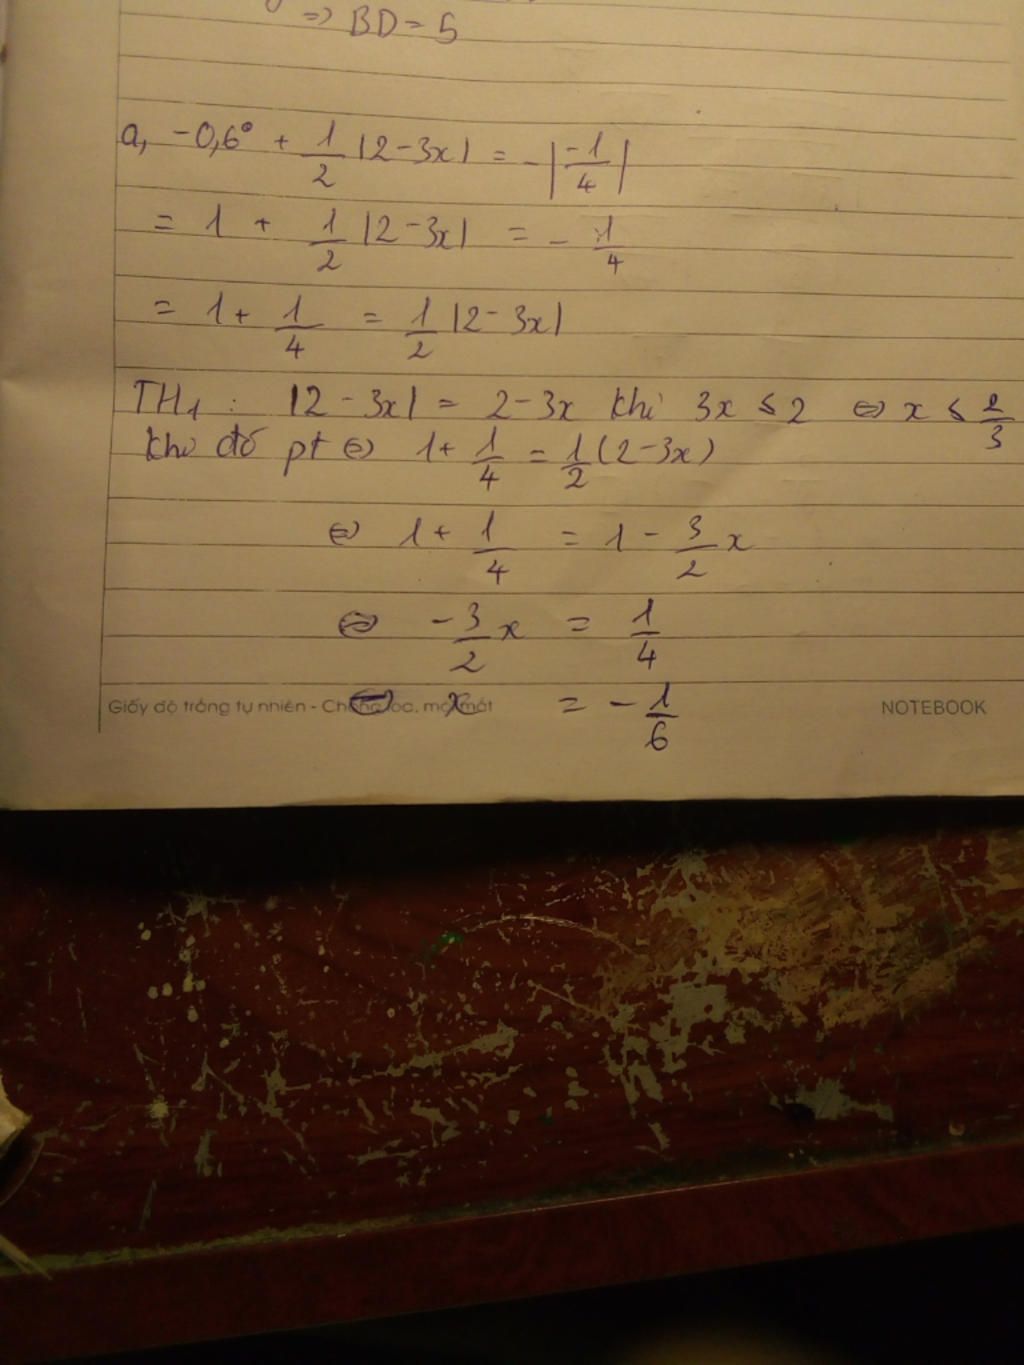 => BD = 5
a, -0,6⁰ + 1/2 |2-3x| = -|-1/4|
= 1 + 1/2 |2-3x| = - 1/4
= 1 + 1/4 = 1/2 |2-3x|
TH1 : |2-3x| = 2-3x khi 3x ≤ 2 ⇔ x ≤ 2/3
khi đó pt ⇔ 1+ 1/4 = 1/2 (2-3x)
⇔ 1+ 1/4 = 1 - 3/2 x
⇔ -3/2 x = 1/4
⇔ x = - 1/6
Giấy độ trắng tự nhiên - Chống lóa, mỏi mắt NOTEBOOK